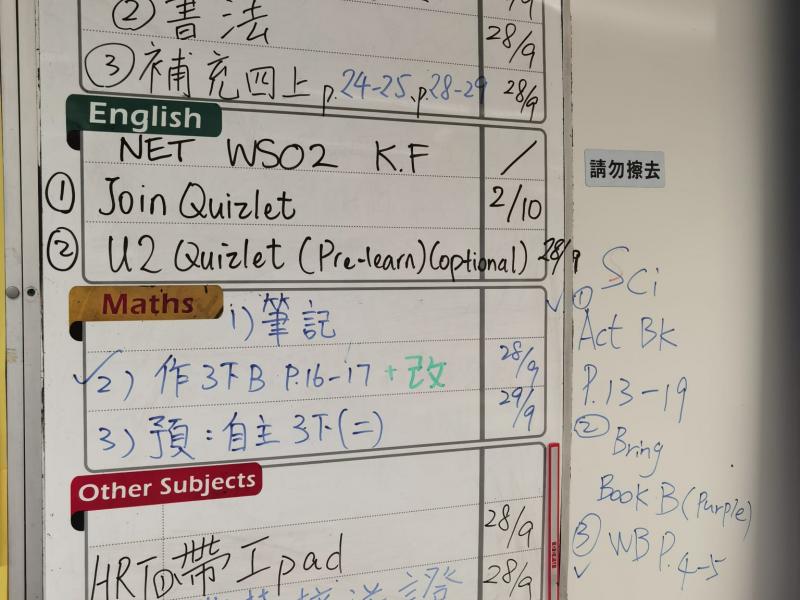 ② 書法 28/9
③ 補充四上 p.24-25、p.28-29 28/9
English
NET WS02 K.F /
① Join Quizlet 2/10
② U2 Quizlet (Pre-learn)(optional) 28/9
Maths
1) 筆記
✓2) 作3下B P.16-17 + 改 28/9
3) 預:自主 3下(二) 29/9
Other Subjects
28/9
HRT ① 帶Ipad 28/9
請勿擦去
Sci
✓①
Act Bk
P.13-19
② Bring
Book B (Purple)
③ WB P.4-5
✓